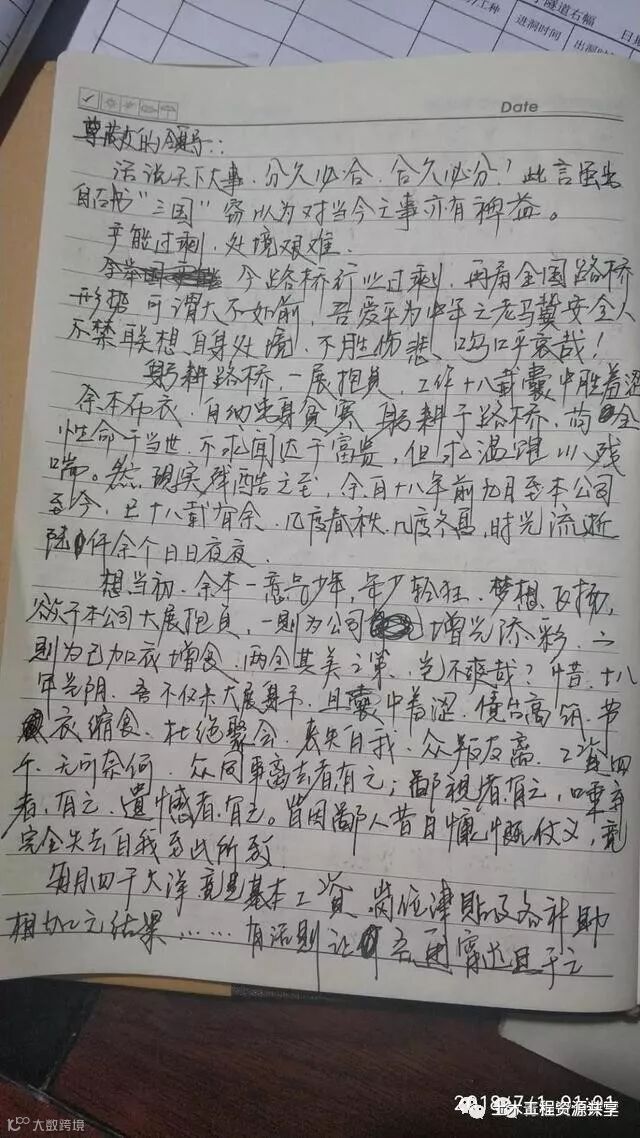 工种
隧道右幅
进洞时间
出洞时间
日班
Date
尊敬的领导：
话说天下大事、分久必合、合久必分！此言虽出
自古书“三国”窃以为对当今之事亦有裨益。
产能过剩，处境艰难.
今路桥行业过剩，再有全国路桥
形势可谓大不如前，吾爱平为中年之老马冀安全人
不禁联想自身处境、不胜伤悲、呜呼哀哉！
躬耕路桥，一展抱负，工作十八载囊中胜羞涩
余本布衣，自幼出身贫寒 躬耕于路桥，苟全
性命于当世，不求闻达于富贵，但求温暖以残
喘。然，现实残酷之至，余自十八年前九月至本公司
至今，已十八载有余，几度春秋，几度冬夏，时光流逝
陆仟余个日日夜夜.
想当初、余本一意气少年，年少轻狂、梦想飞扬，
欲于本公司大展抱负，一则为公司增光添彩，二
则为己加衣增食、两全其美之策、岂不爽哉？惜，十八
年光阴、吾不仅未大展身手、且囊中羞涩、债台高筑、节
衣缩食、杜绝聚会、丧失自我、众叛友离、工资四
千、无可奈何、众同事离去者，有之；鄙视者，有之，唾弃
者，有之、遗憾者，有之。皆因鄙人昔日慷慨仗义，竟
完全失去自我至此所致.
每月四千大洋竟是基本工资、岗位津贴及各补助
相加之结果……有活则让吾更穷迫且于之
2018/7/1 01:01
土木工程资源课堂
大数跨境